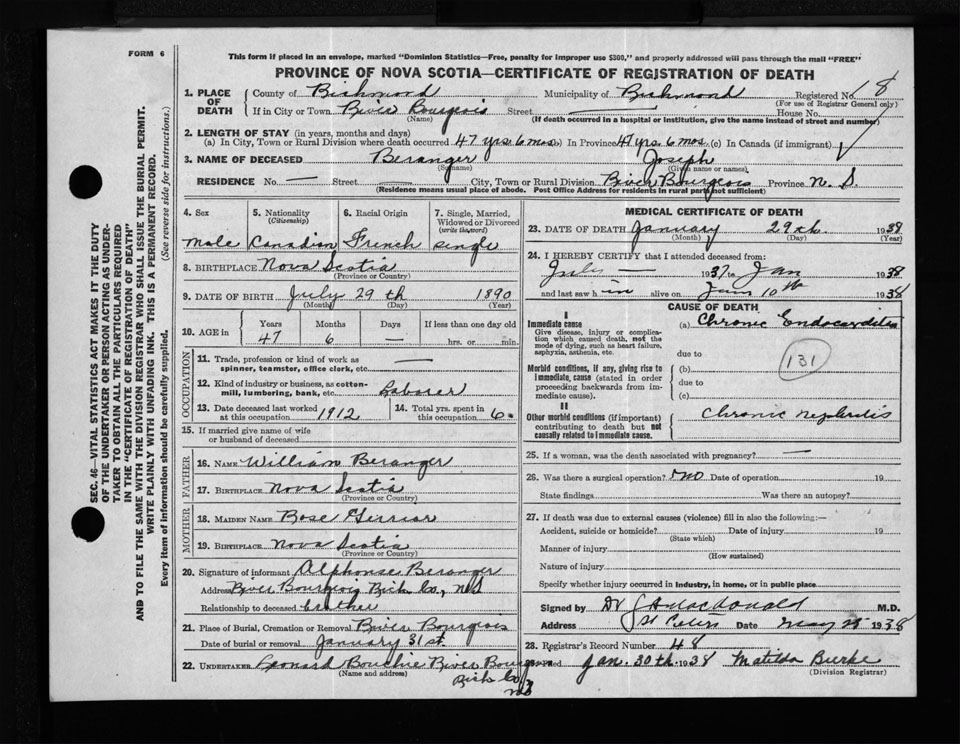 FORM 6
This form if placed in an envelope, marked "Dominion Statistics—Free, penalty for improper use $300," and properly addressed will pass through the mail "FREE"
PROVINCE OF NOVA SCOTIA—CERTIFICATE OF REGISTRATION OF DEATH
1. PLACE OF DEATH
County of Richmond Municipality of Richmond Registered No. 18
(For use of Registrar General only)
If in City or Town River Bourgeois Street — House No.
(Name) (If death occurred in a hospital or institution, give the name instead of street and number)
2. LENGTH OF STAY (in years, months and days)
(a) In City, Town or Rural Division where death occurred 47 yrs. 6 mos. (b) In Province 47 yrs. 6 mos. (c) In Canada (if immigrant)
3. NAME OF DECEASED Beranger Joseph
(Surname) (Given name or names)
RESIDENCE No. — Street — City, Town or Rural Division River Bourgeois Province N. S.
(Residence means usual place of abode. Post Office Address for residents in rural parts not sufficient)
4. Sex
male
5. Nationality
(Citizenship)
Canadian
6. Racial Origin
French
7. Single, Married, Widowed or Divorced
(write the word)
single
8. BIRTHPLACE Nova Scotia
(Province or Country)
9. DATE OF BIRTH July 29th 1890
(Month) (Day) (Year)
10. AGE in Years Months Days If less than one day old
47 6 — hrs. or min.
OCCUPATION
11. Trade, profession or kind of work as spinner, teamster, office clerk, etc. —
12. Kind of industry or business, as cotton-mill, lumbering, bank, etc. Laborer
13. Date deceased last worked at this occupation 1912
14. Total yrs. spent in this occupation 6
15. If married give name of wife or husband of deceased
FATHER
16. NAME William Beranger
17. BIRTHPLACE Nova Scotia
(Province or Country)
MOTHER
18. MAIDEN NAME Rose
19. BIRTHPLACE Nova Scotia
(Province or Country)
20. Signature of informant Alphonse Beranger
Address River Bourgeois Rich Co., N S
Relationship to deceased brother
21. Place of Burial, Cremation or Removal River Bourgeois
Date of burial or removal January 31st.
22. UNDERTAKER Leonard Bouchie River Bourgeois
(Name and address)
Rich Co
NS
MEDICAL CERTIFICATE OF DEATH
23. DATE OF DEATH January 29th 1938
(Month) (Day) (Year)
24. I HEREBY CERTIFY that I attended deceased from:
July — 1937 to Jan 1938
and last saw h im alive on Jan 10th 1938
CAUSE OF DEATH
I
Immediate cause
Give disease, injury or complication which caused death, not the mode of dying, such as heart failure, asphyxia, asthenia, etc.
(a) Chronic Endocarditis
due to
Morbid conditions, if any, giving rise to immediate cause (stated in order proceeding backwards from immediate cause).
(b)
131
due to
(c)
II
Other morbid conditions (if important) contributing to death but not causally related to immediate cause.
Chronic nephritis
25. If a woman, was the death associated with pregnancy? —
26. Was there a surgical operation? no Date of operation 19
State findings Was there an autopsy?
27. If death was due to external causes (violence) fill in also the following:—
Accident, suicide or homicide? Date of injury 19
(State which)
Manner of injury
(How sustained)
Nature of injury
Specify whether injury occurred in industry, in home, or in public place
Signed by Dr MacDonald M.D.
Address St Peters Date May 1938
28. Registrar's Record Number 48
Filed Jan. 30th 1938 Matilda Burke
(Division Registrar)
SEC. 46—VITAL STATISTICS ACT MAKES IT THE DUTY
OF THE UNDERTAKER OR PERSON ACTING AS UNDER-
TAKER TO OBTAIN ALL THE PARTICULARS REQUIRED
IN THE "CERTIFICATE OF REGISTRATION OF DEATH"
AND TO FILE THE SAME WITH THE DIVISION REGISTRAR WHO SHALL ISSUE THE BURIAL PERMIT.
WRITE PLAINLY WITH UNFADING INK. THIS IS A PERMANENT RECORD.
Every item of information should be carefully supplied. (See reverse side for instructions.)